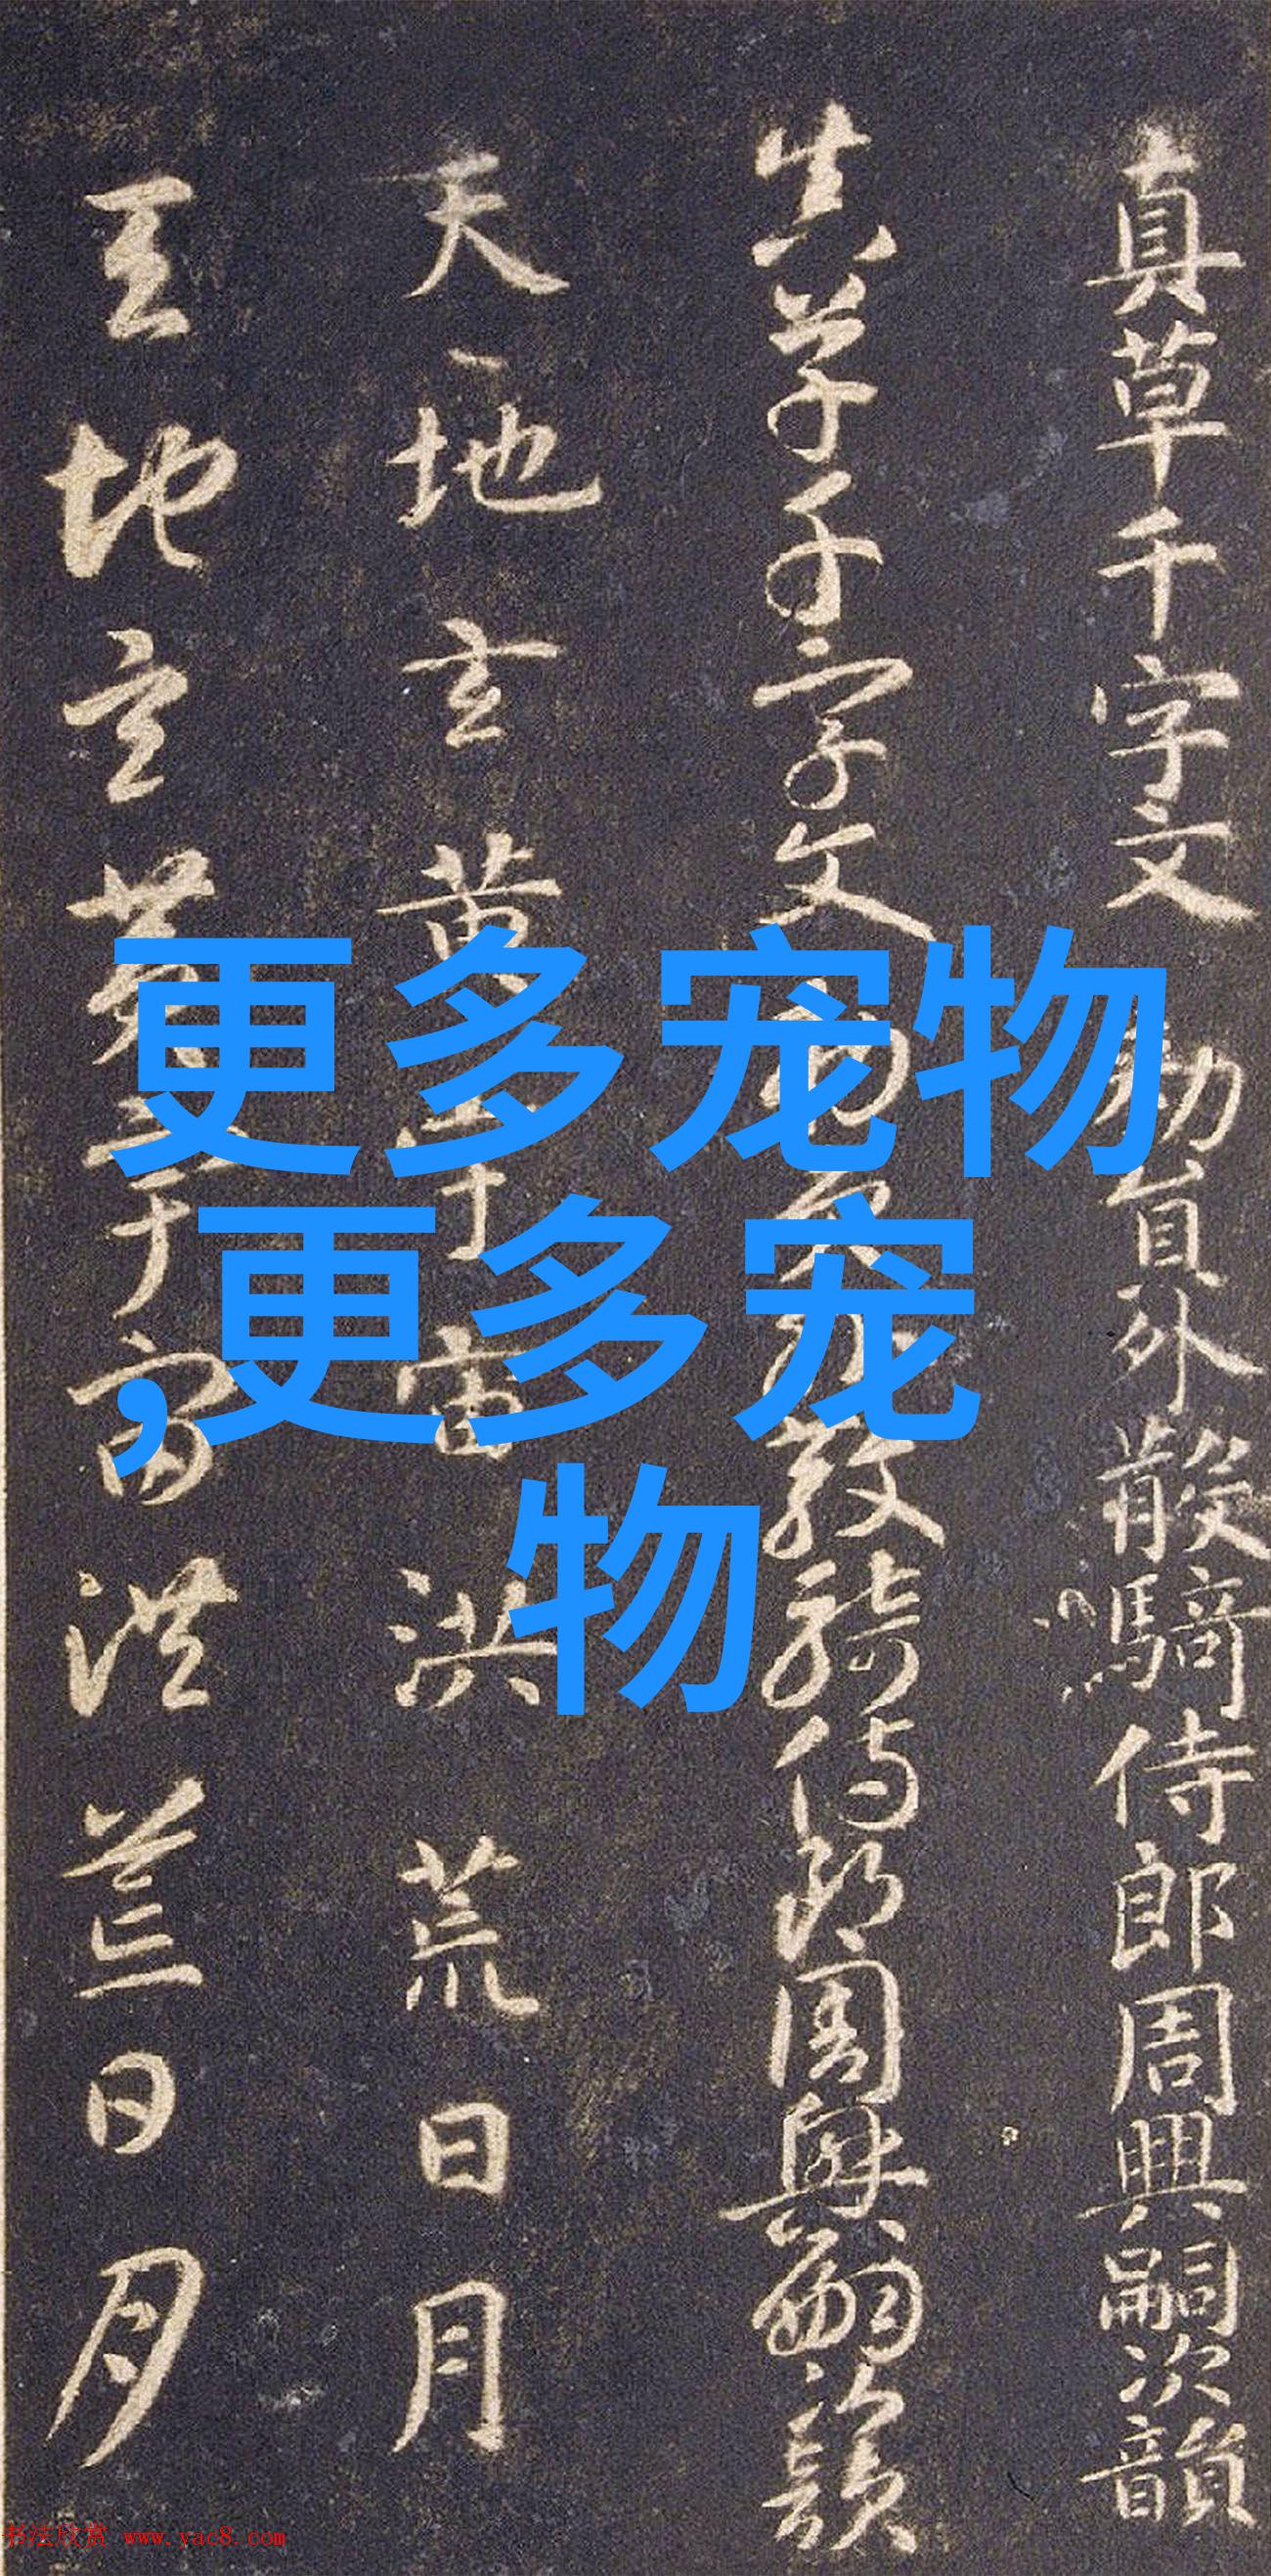 真草千字文 勅員外散騎侍郎周興嗣次韻
真草千字文 勅員外散騎侍郎周興嗣次韻
天地玄黄宇宙洪荒日月
天地玄黄宇宙洪荒日月
更多宠物
,更多宠
物
书法欣赏 www.yac8.com